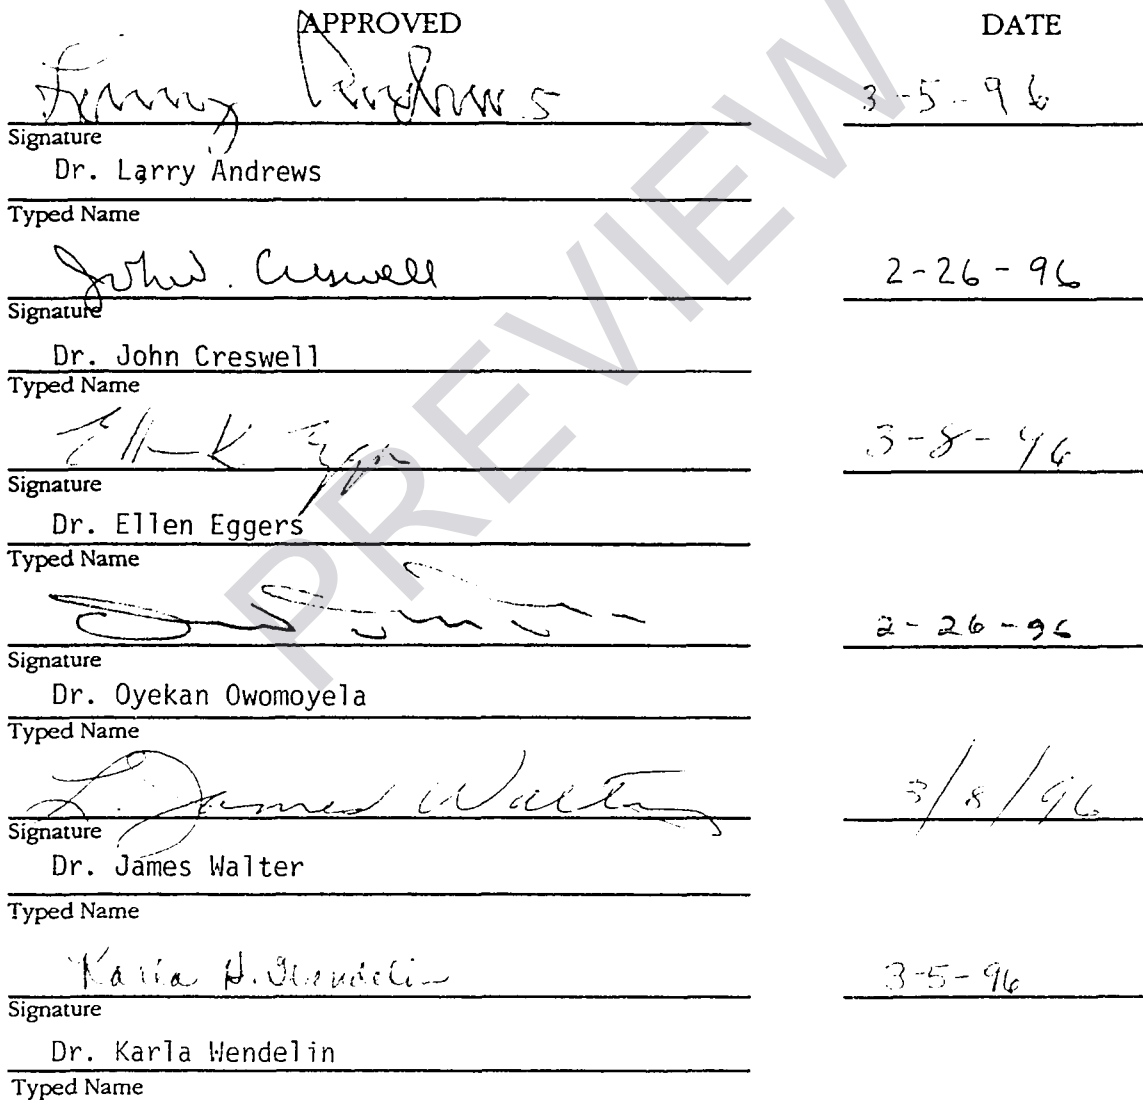 APPROVED DATE
Larry Andrews 3-5-96
Signature
Dr. Larry Andrews
Typed Name
John W. Creswell 2-26-96
Signature
Dr. John Creswell
Typed Name
Ellen K Eggers 3-8-96
Signature
Dr. Ellen Eggers
Typed Name
2-26-96
Signature
Dr. Oyekan Owomoyela
Typed Name
L. James Walter 3/8/96
Signature
Dr. James Walter
Typed Name
Karla H. Wendelin 3-5-96
Signature
Dr. Karla Wendelin
Typed Name
PREVIEW